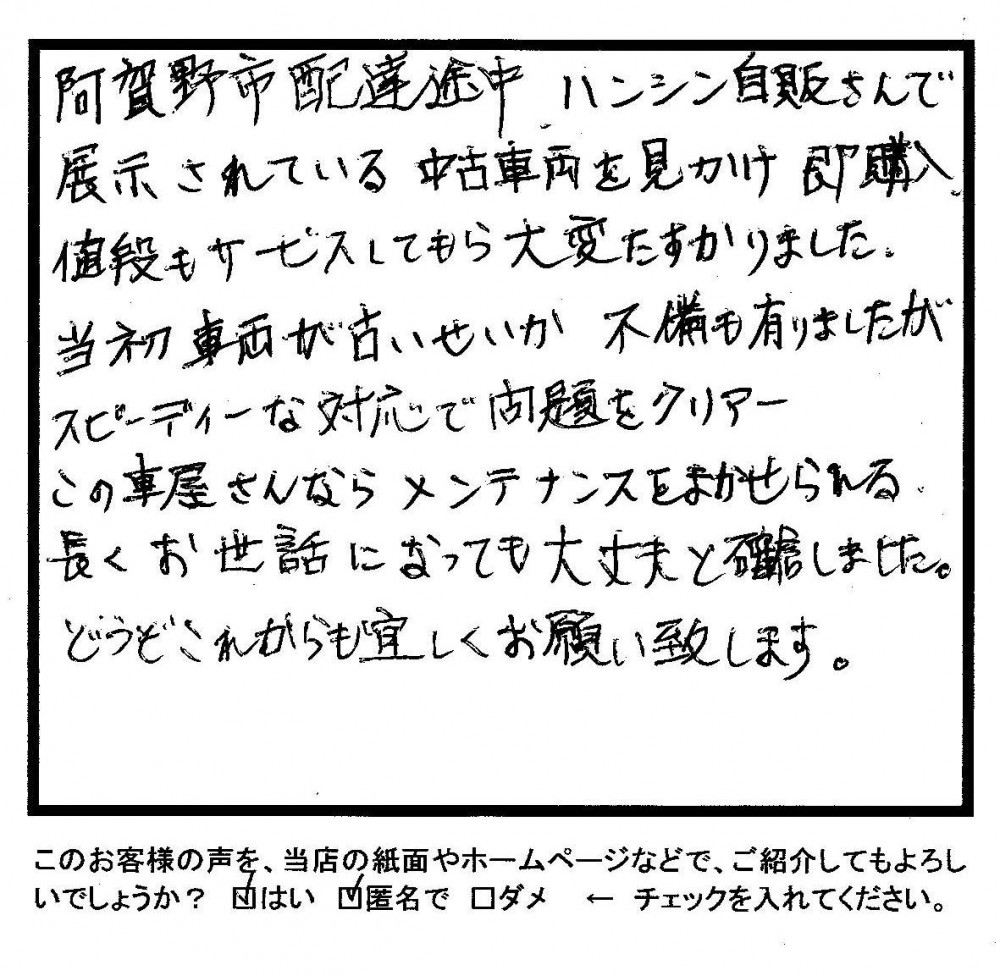 阿賀野市配達途中 ハンシン自販さんで
展示されている 中古車両を見かけ 即購入
値段もサービスしてもら大変たすかりました。
当初 車両が古いせいか 不備も有りましたが
スピーディーな対応で問題をクリアー
この車屋さんなら メンテナンスをまかせられる
長く お世話になっても大丈夫と確信しました。
どうぞこれからも宜しくお願い致します。
このお客様の声を、当店の紙面やホームページなどで、ご紹介してもよろし
いでしょうか? ☑はい ☑匿名で □ダメ ← チェックを入れてください。